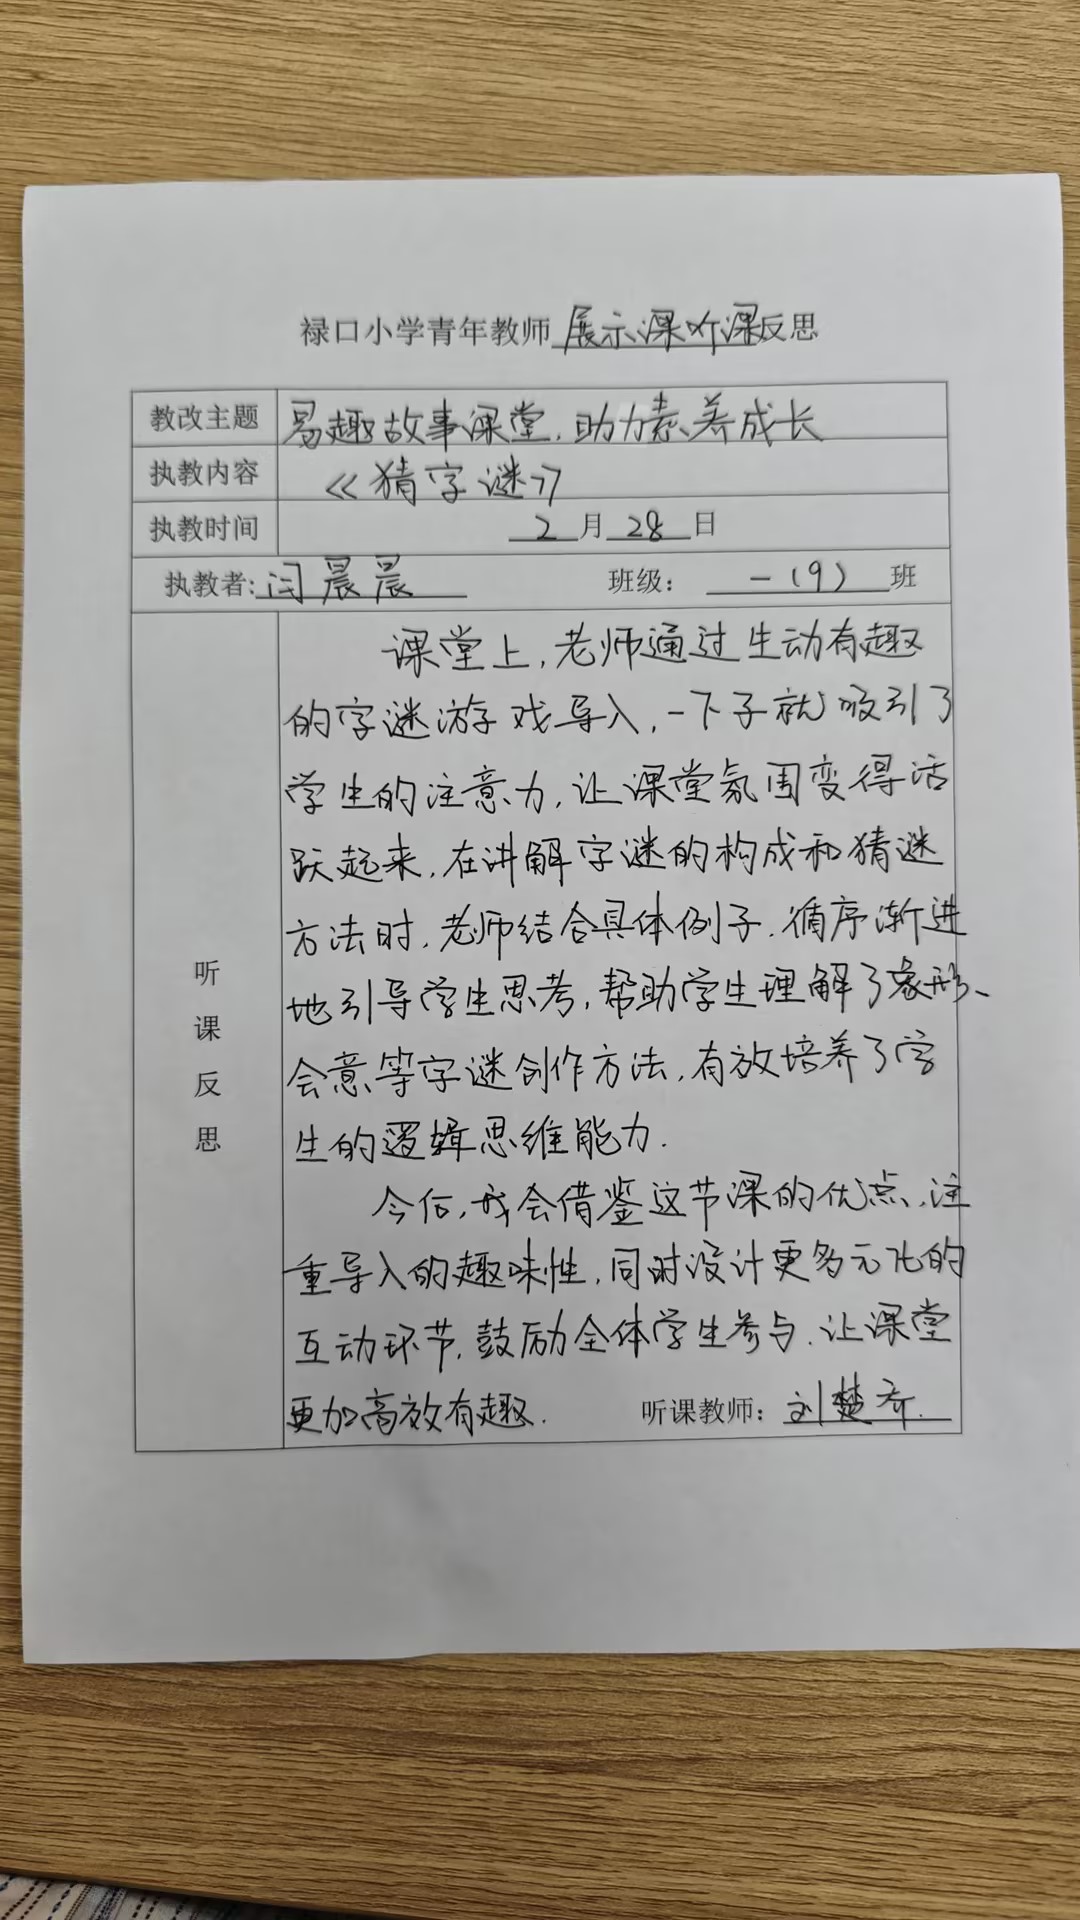 禄口小学青年教师展示课听课反思
教改主题 易趣故事课堂,助力素养成长
执教内容 《猜字谜》
执教时间 2月28日
执教者:闫晨晨 班级: 一(9) 班
听课反思
课堂上,老师通过生动有趣
的字谜游戏导入,一下子就吸引了
学生的注意力,让课堂氛围变得活
跃起来,在讲解字谜的构成和猜谜
方法时,老师结合具体例子,循序渐进
地引导学生思考,帮助学生理解了象形、
会意等字谜创作方法,有效培养了学
生的逻辑思维能力.
今后,我会借鉴这节课的优点,注
重导入的趣味性,同时设计更多元化的
互动环节,鼓励全体学生参与,让课堂
更加高效有趣. 听课教师: 刘楚乔.